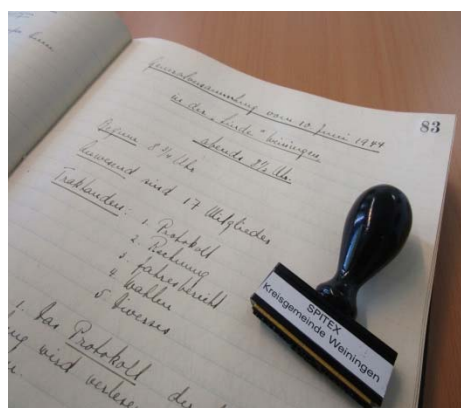 Generalversammlung vom 10. Juni 1944
in der „Linde" Weiningen
abends 8½ Uhr.
83
Beginn 8¾ Uhr
Anwesend sind 17 Mitglieder
Traktanden: 1. Protokoll
2. Rechnung
3. Jahresbericht
4. Wahlen
5. Diverses
1. Das Protokoll der
wird verlesen
SPITEX
Kreisgemeinde Weiningen